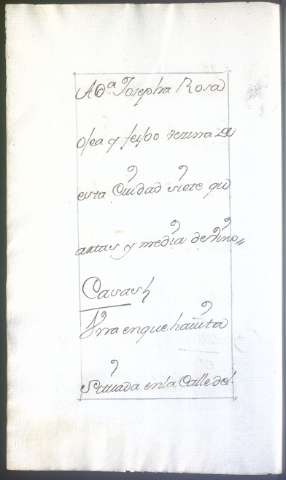 A Dª Josepha Rosa
olea y feijoo vezina de
esta Ciudad siete qu
artas y media de vino
Casas
Vna en que havita
Situada en la Calle del